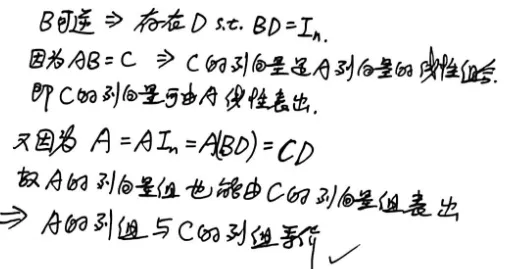 B可逆 ⇒ 存在 D s.t. BD=Iₙ.
因为AB=C ⇒ C的列向量是A列向量的线性组合.
即C的列向量可由A线性表出.
又因为 A=AIₙ=A(BD)=CD
故A的列向量组也能由C的列向量组表出
⇒ A的列组与C的列组等价 ✓